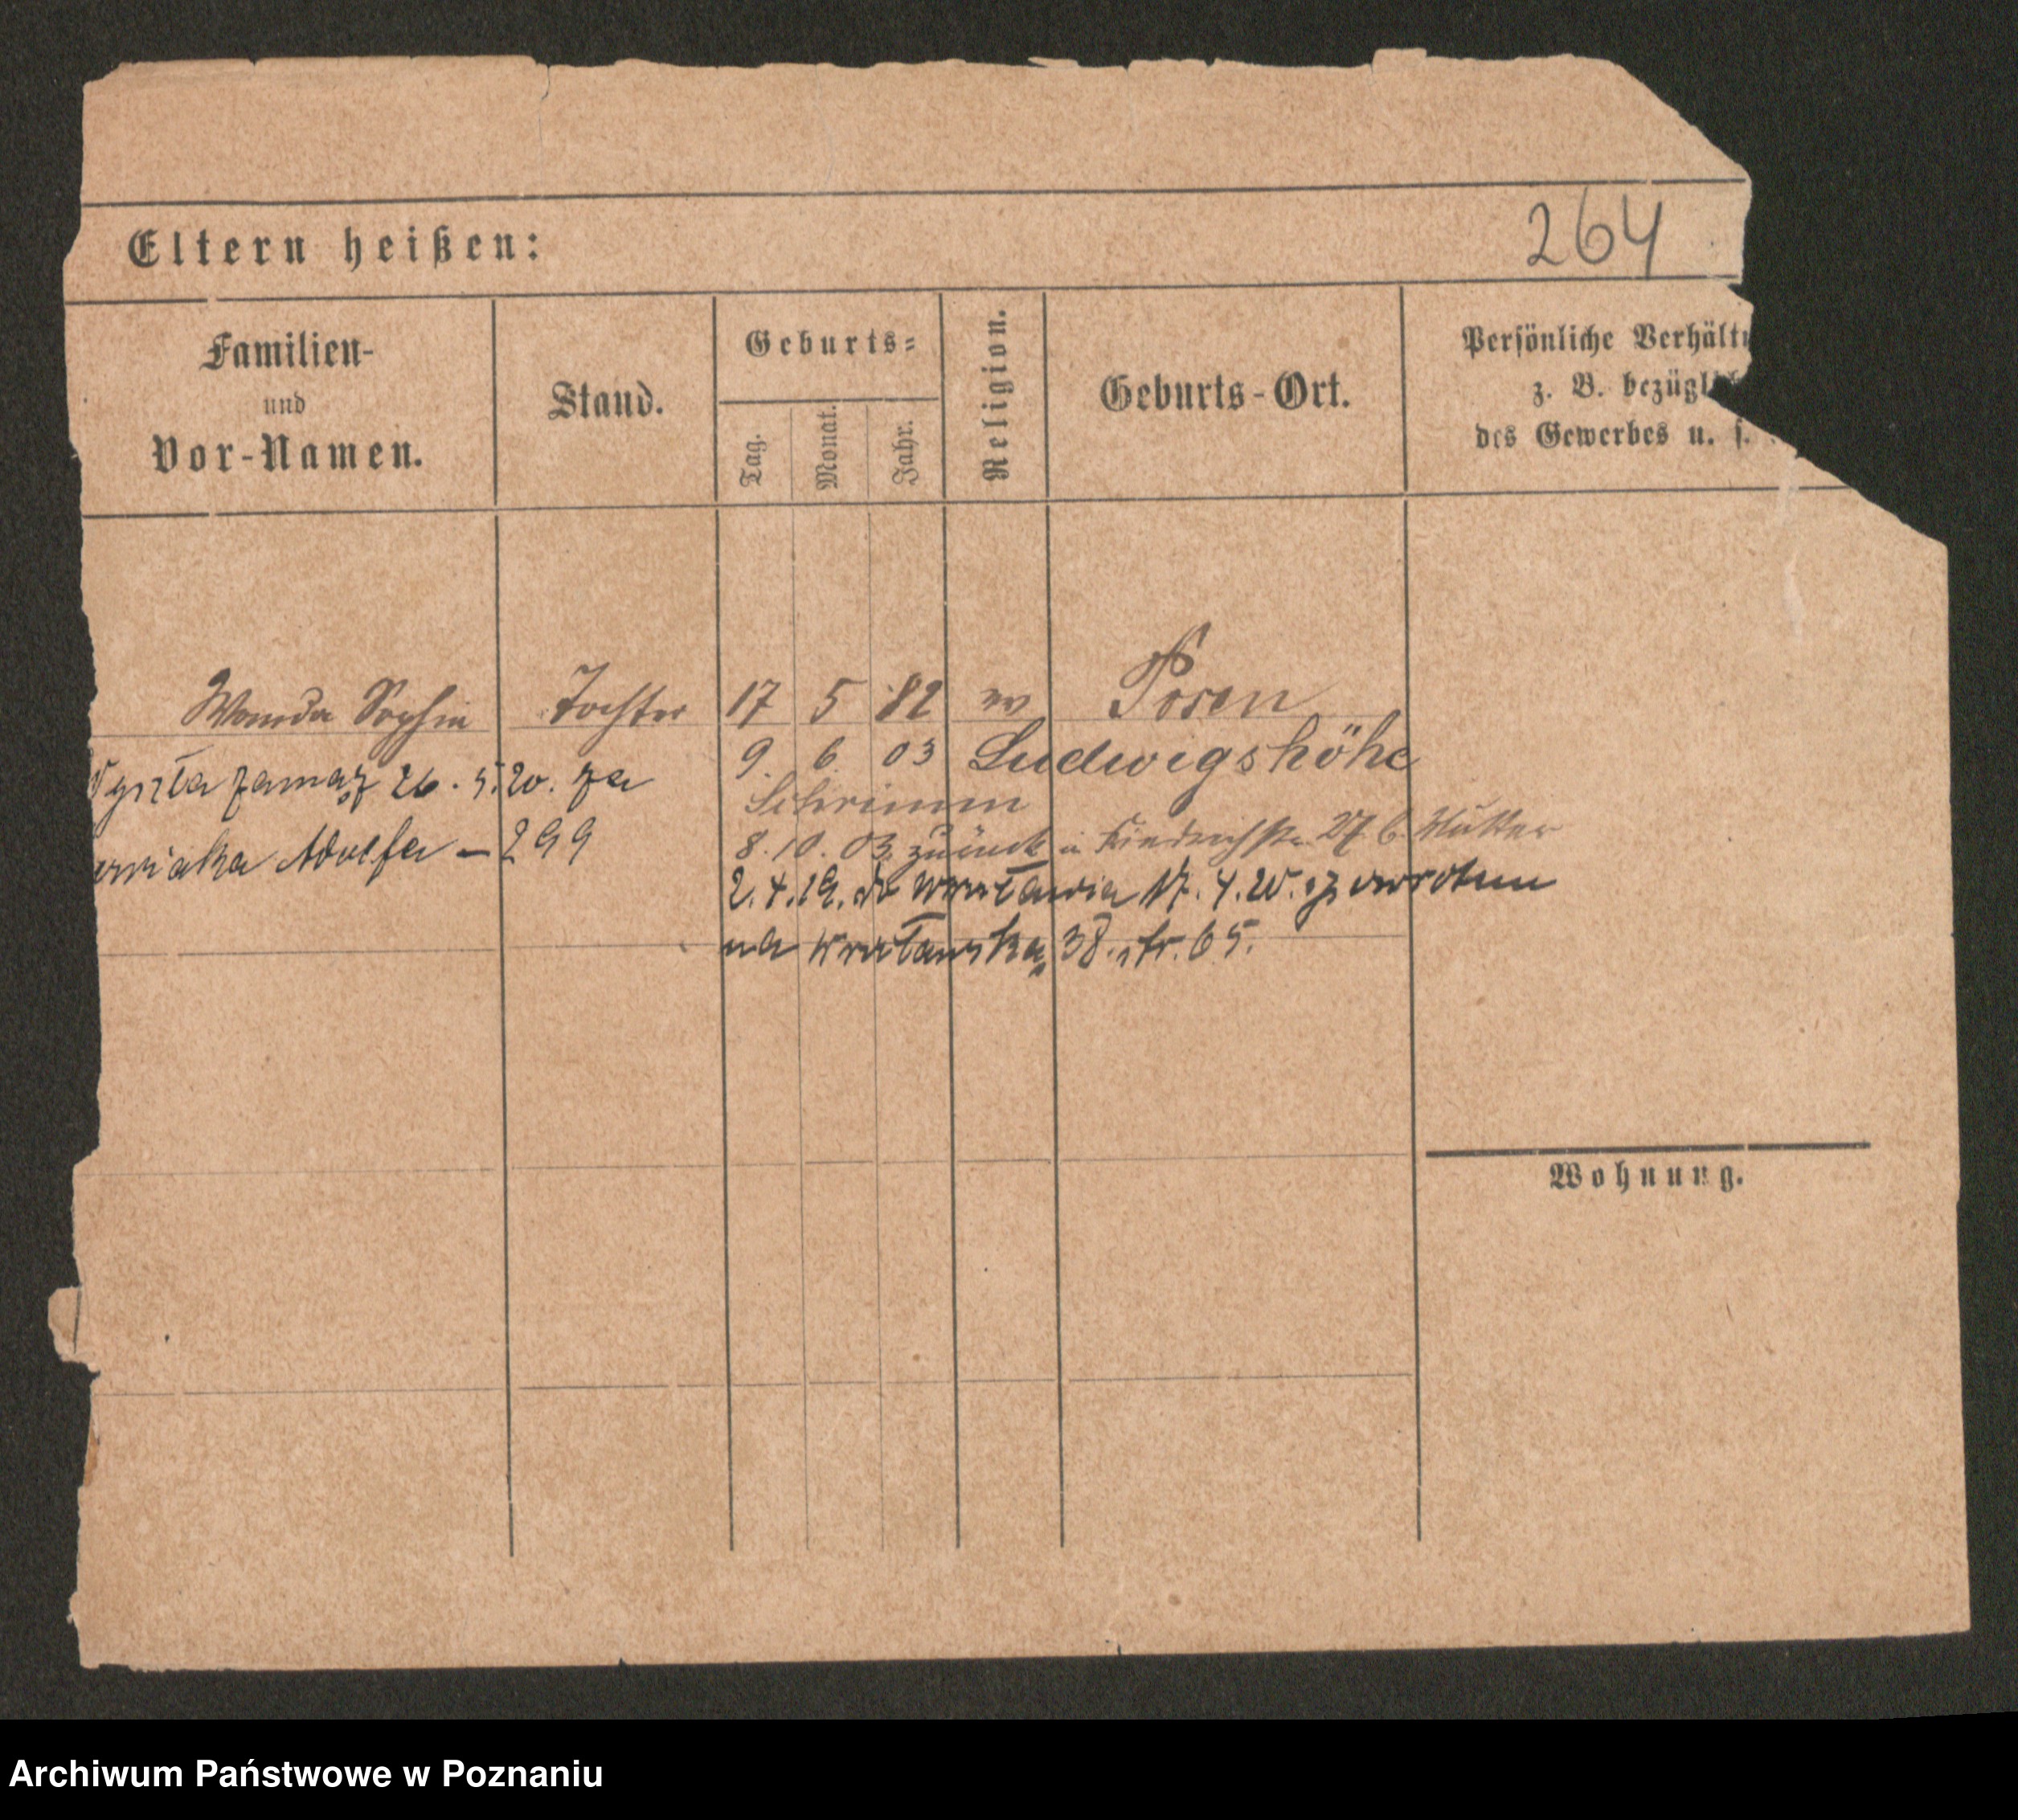 264
Eltern heißen:
Familien-
und
Vor-Namen.
Stand.
Geburts=
Tag.
Monat.
Jahr.
Religion.
Geburts-Ort.
Persönliche Verhält
z. B. bezügl
des Gewerbes u. s.
Wanda Sophia Tochter 17 5 82 ev Posen
9. 6. 03 Ludwigshöhe
Schrimm
8.10.03. zurück Friedrichstr. 27 b. Mutter
2.4.19. do Wrocławia 17.4.20. z powrotem
na Wrocławską 38. str. 65.
yszła zamąż 26.5.20. za
wiaka Adolfa – 299
Wohnung.
Archiwum Państwowe w Poznaniu